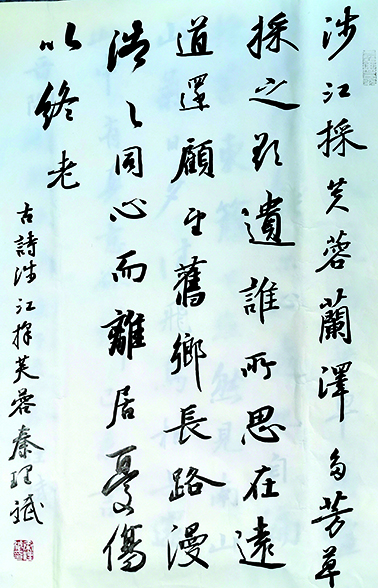 涉江採芙蓉蘭澤多芳草
採之欲遺誰所思在遠
道還顧望舊鄉長路漫
浩浩同心而離居憂傷
以終老
古詩涉江採芙蓉秦理斌